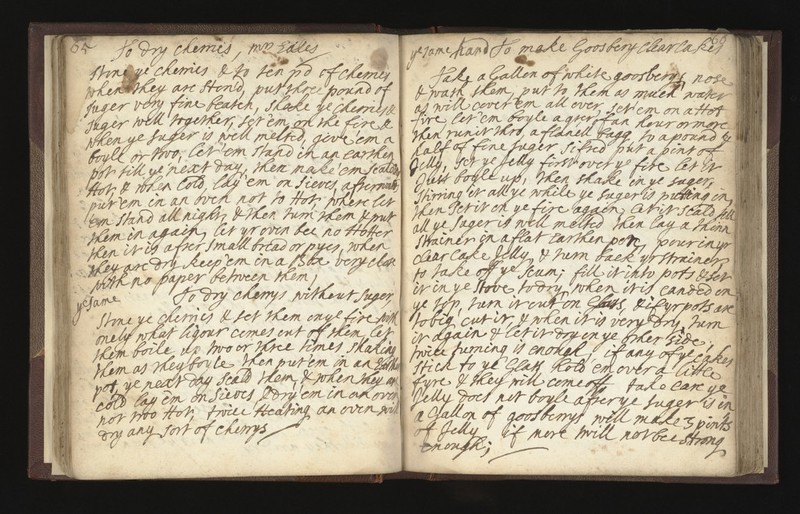 65
To dry cherries, mrs Eales
Stone ye cherries & to ten pd of cherries
when they are ston'd, put three pound of
suger very fine beaten, shake ye cherries &
suger well together, set 'em on the fire &
when ye suger is well melted, give 'em a
boyle or two, let 'em stand in an earthen
pot till ye next day, then make 'em scalding
Hot, & when cold, lay 'em on sieves, afterwards
put 'em in an oven not to Hot, where let
'em stand all night, & then turn them & put
them in again, let yr oven bee no Hotter
then it is after small bread or pyes, when
they are dry keep 'em in a Box very close
with no paper between them,
ye same To dry cherrys without suger,
Stone ye cherries & set them on ye fire with
onely what liquor comes out of them, let
them boile up two or three times shaking
them as they boyle then put 'em in an Earthen
pot, ye next day scald them, & when they are
cold lay 'em on sieves & dry 'em in an oven
not too Hot, twice Heating an oven will
dry any sort of cherrys
66
ye same Hand To make Goosbery clear Cakes
Take a Gallon of white goosberrys, nose
& wash them, put to them as much water
as will cover 'em all over, set 'em on a Hot
fire let 'em boyle a qrter of an hour or more
then run it thro, a flanell bagg, to a pound &
half of fine suger sifted put a pint of
Jelly, set ye Jelly first over ye fire let it
Just boyle up, then shake in ye suger,
stirring it all ye while ye suger is putting in,
then set it on ye fire again, let it scald till
all ye suger is well melted then lay a thinn
strainer in a flat Earthen pott, pour in yr
clear cake Jelly, & turn back yr strainer
to take off ye scum; fill it into pots & set
it in ye stove to dry, when it is canded on
ye top, turn it out on Glass, & if yr pots are
to big cut it, & when it is very dry, turn
it again & let it dry on ye other side,
twice turning is enough, if any of ye cakes
stick to ye Glass hold 'em over a little
fyre & they will come off, take care ye
Jelly does not boyle after ye suger is in
a Gallon of goosberrys will make 3 pints
of Jelly if more twill not bee strong
enough;